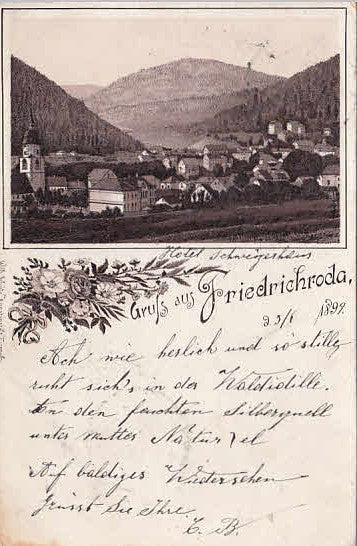 Hotel Schweizerhaus
Gruß aus Friedrichroda,
1899.
Ach wie herlich und so stille
ruht sich's in der Waldidille.
den feuchten Silberquell
unter mutter Natur
Auf baldiges Wiedersehen
Grüsst Sie Ihre
B.